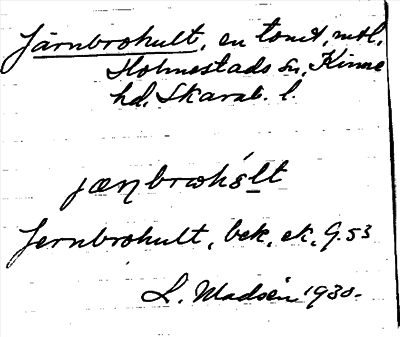 Järnbrohult, en tomt, mtl.
Holmestads sn, Kinne
hd, Skarab. l.
Jernbrohult, bek. ek. 9.53
L. Madsén 1930.